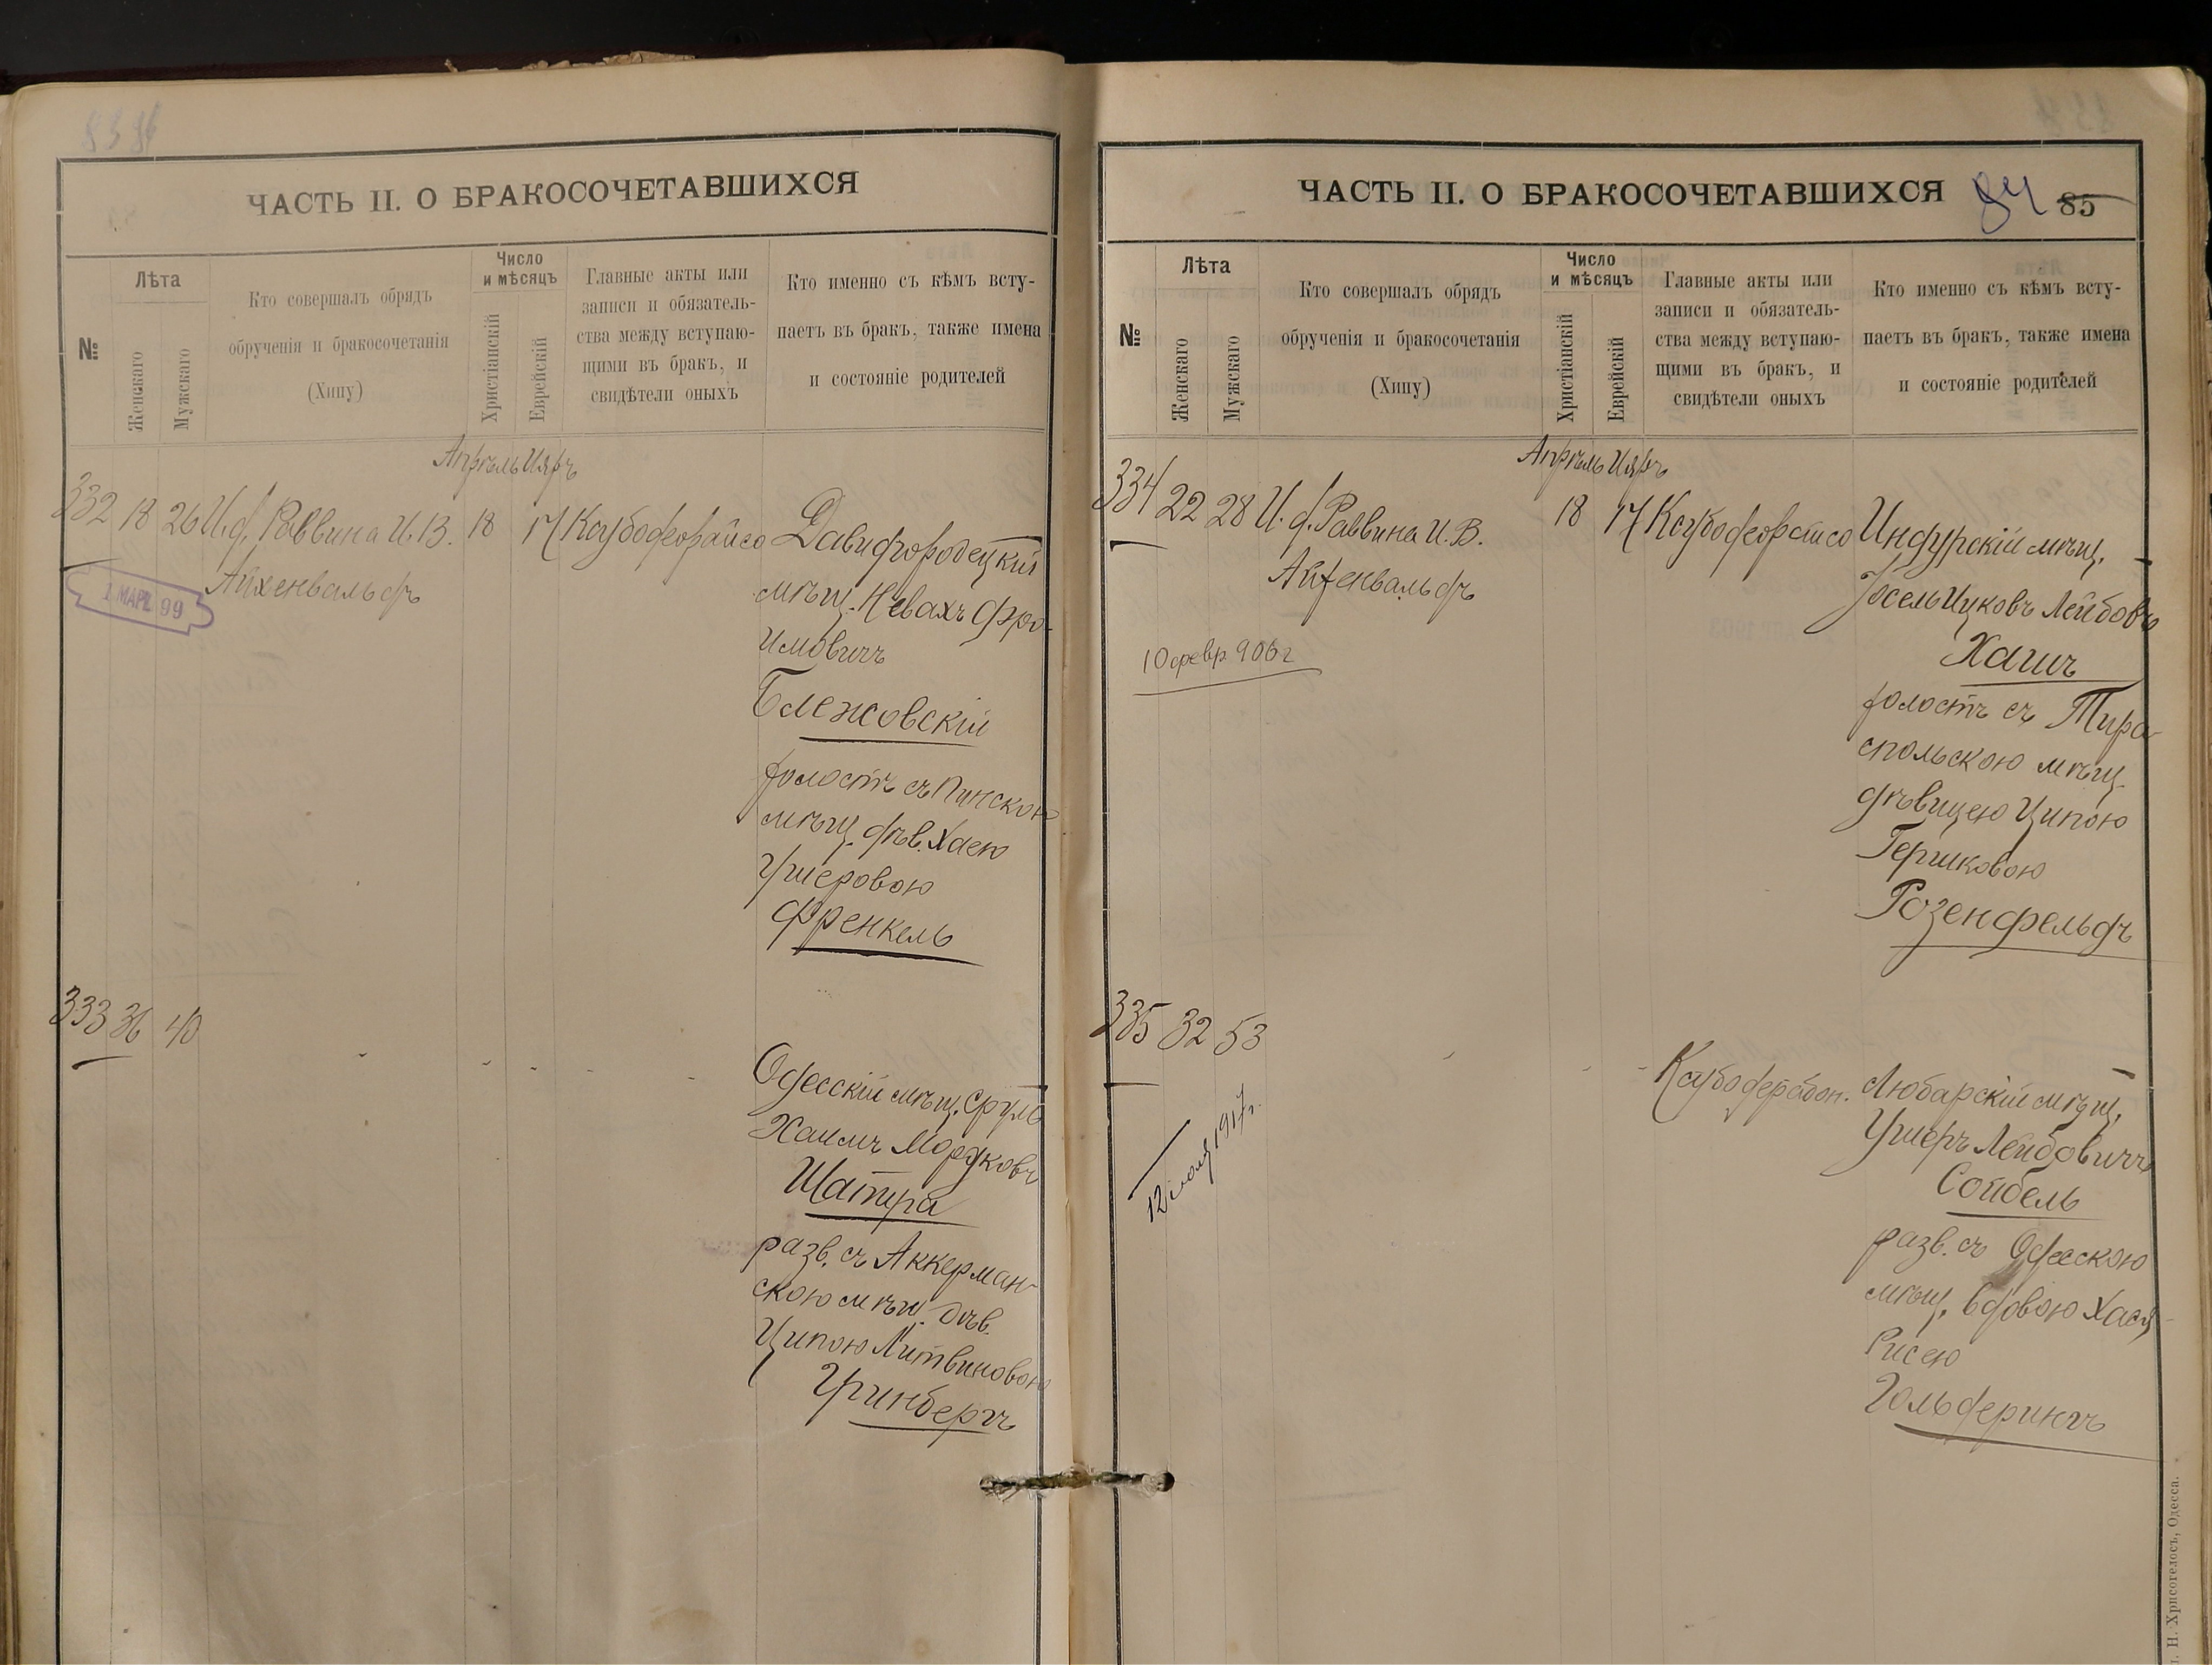 ЧАСТЬ II. О БРАКОСОЧЕТАВШИХСЯ
№
Лѣта
Женскаго
Мужскаго
Кто совершалъ обрядъ
обрученія и бракосочетанія
(Хипу)
Число
и мѣсяцъ
Христіанскій
Еврейскій
Главные акты или
записи и обязатель-
ства между вступаю-
щими въ бракъ, и
свидѣтели оныхъ
Кто именно съ кѣмъ всту-
паетъ въ бракъ, также имена
и состояніе родителей
Апрѣль Ияръ
332 18 26 И. д. Раввина И. В. 18 17 Давидгородецкій
Айхенвальдъ
1 МАР. 99
мѣщ. Невахъ Фро-
имовичъ
Блежовскій
холостъ съ Пинскою
мѣщ. дѣв. Хаею
Ушеровою
Френкель
333 36 40
Одесскій мѣщ. Сруль
Хаимъ Мордковъ
Шапира
разв. съ Аккерман-
скою мѣщ. дѣв.
Ципою Литвиновою
Гринбергъ
ЧАСТЬ II. О БРАКОСОЧЕТАВШИХСЯ
84 85
№
Лѣта
Женскаго
Мужскаго
Кто совершалъ обрядъ
обрученія и бракосочетанія
(Хипу)
Число
и мѣсяцъ
Христіанскій
Еврейскій
Главные акты или
записи и обязатель-
ства между вступаю-
щими въ бракъ, и
свидѣтели оныхъ
Кто именно съ кѣмъ всту-
паетъ въ бракъ, также имена
и состояніе родителей
Апрѣль Ияръ
334 22 28 И. д. Раввина И. В. 18 17 Индурскій мѣщ.
Айхенвальдъ
Іосель Ицковъ Лейбовъ
10 февр. 906 г
Хашъ
холостъ съ Тира-
спольскою мѣщ.
дѣвицею Ципою
Гершковою
Розенфельдъ
335 32 53
Любарскій мѣщ.
Ушеръ Лейбовичъ
12 іюля 1917 г.
Сойбель
разв. съ Одесскою
мѣщ. вдовою Хася
Рисею
Гольдерингъ
Н. Хрисогелосъ, Одесса.